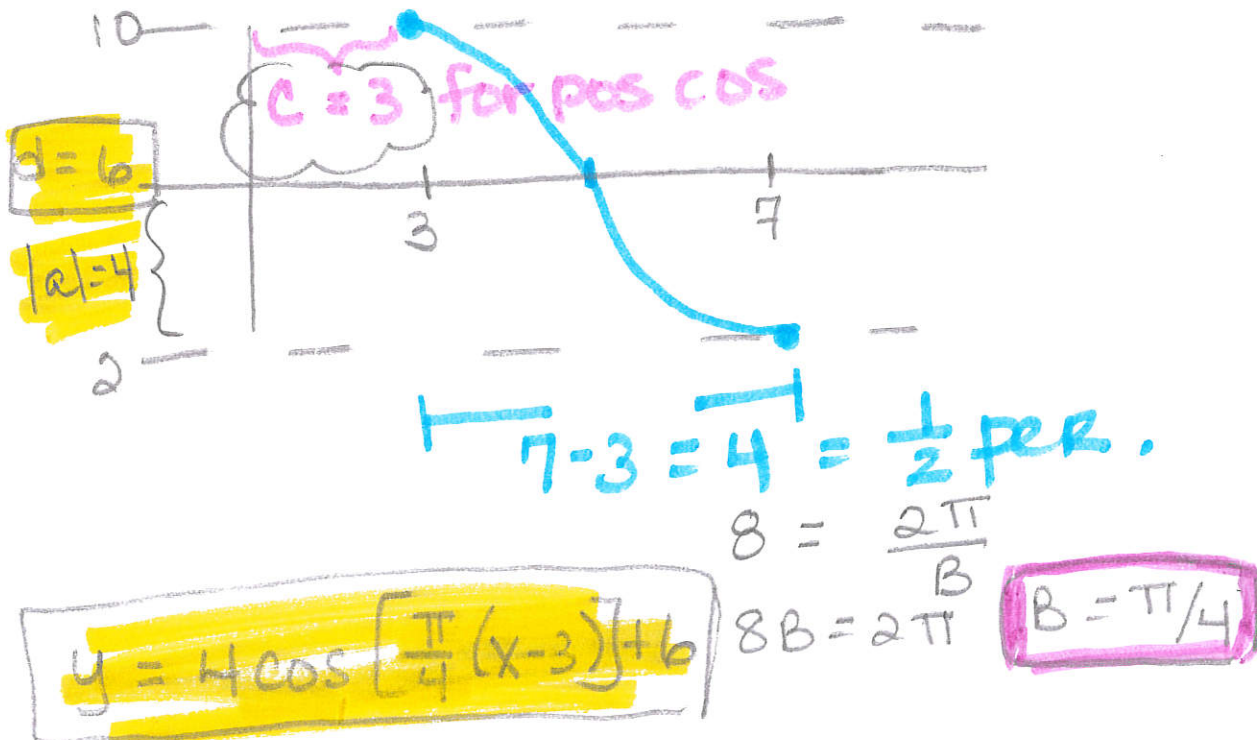 10
C = 3 for pos cos
d = 6
3
7
|a| = 4
2
7 - 3 = 4 = 1/2 per.
8 = 2π/B
8B = 2π
B = π/4
y = 4 cos [π/4 (x - 3)] + 6